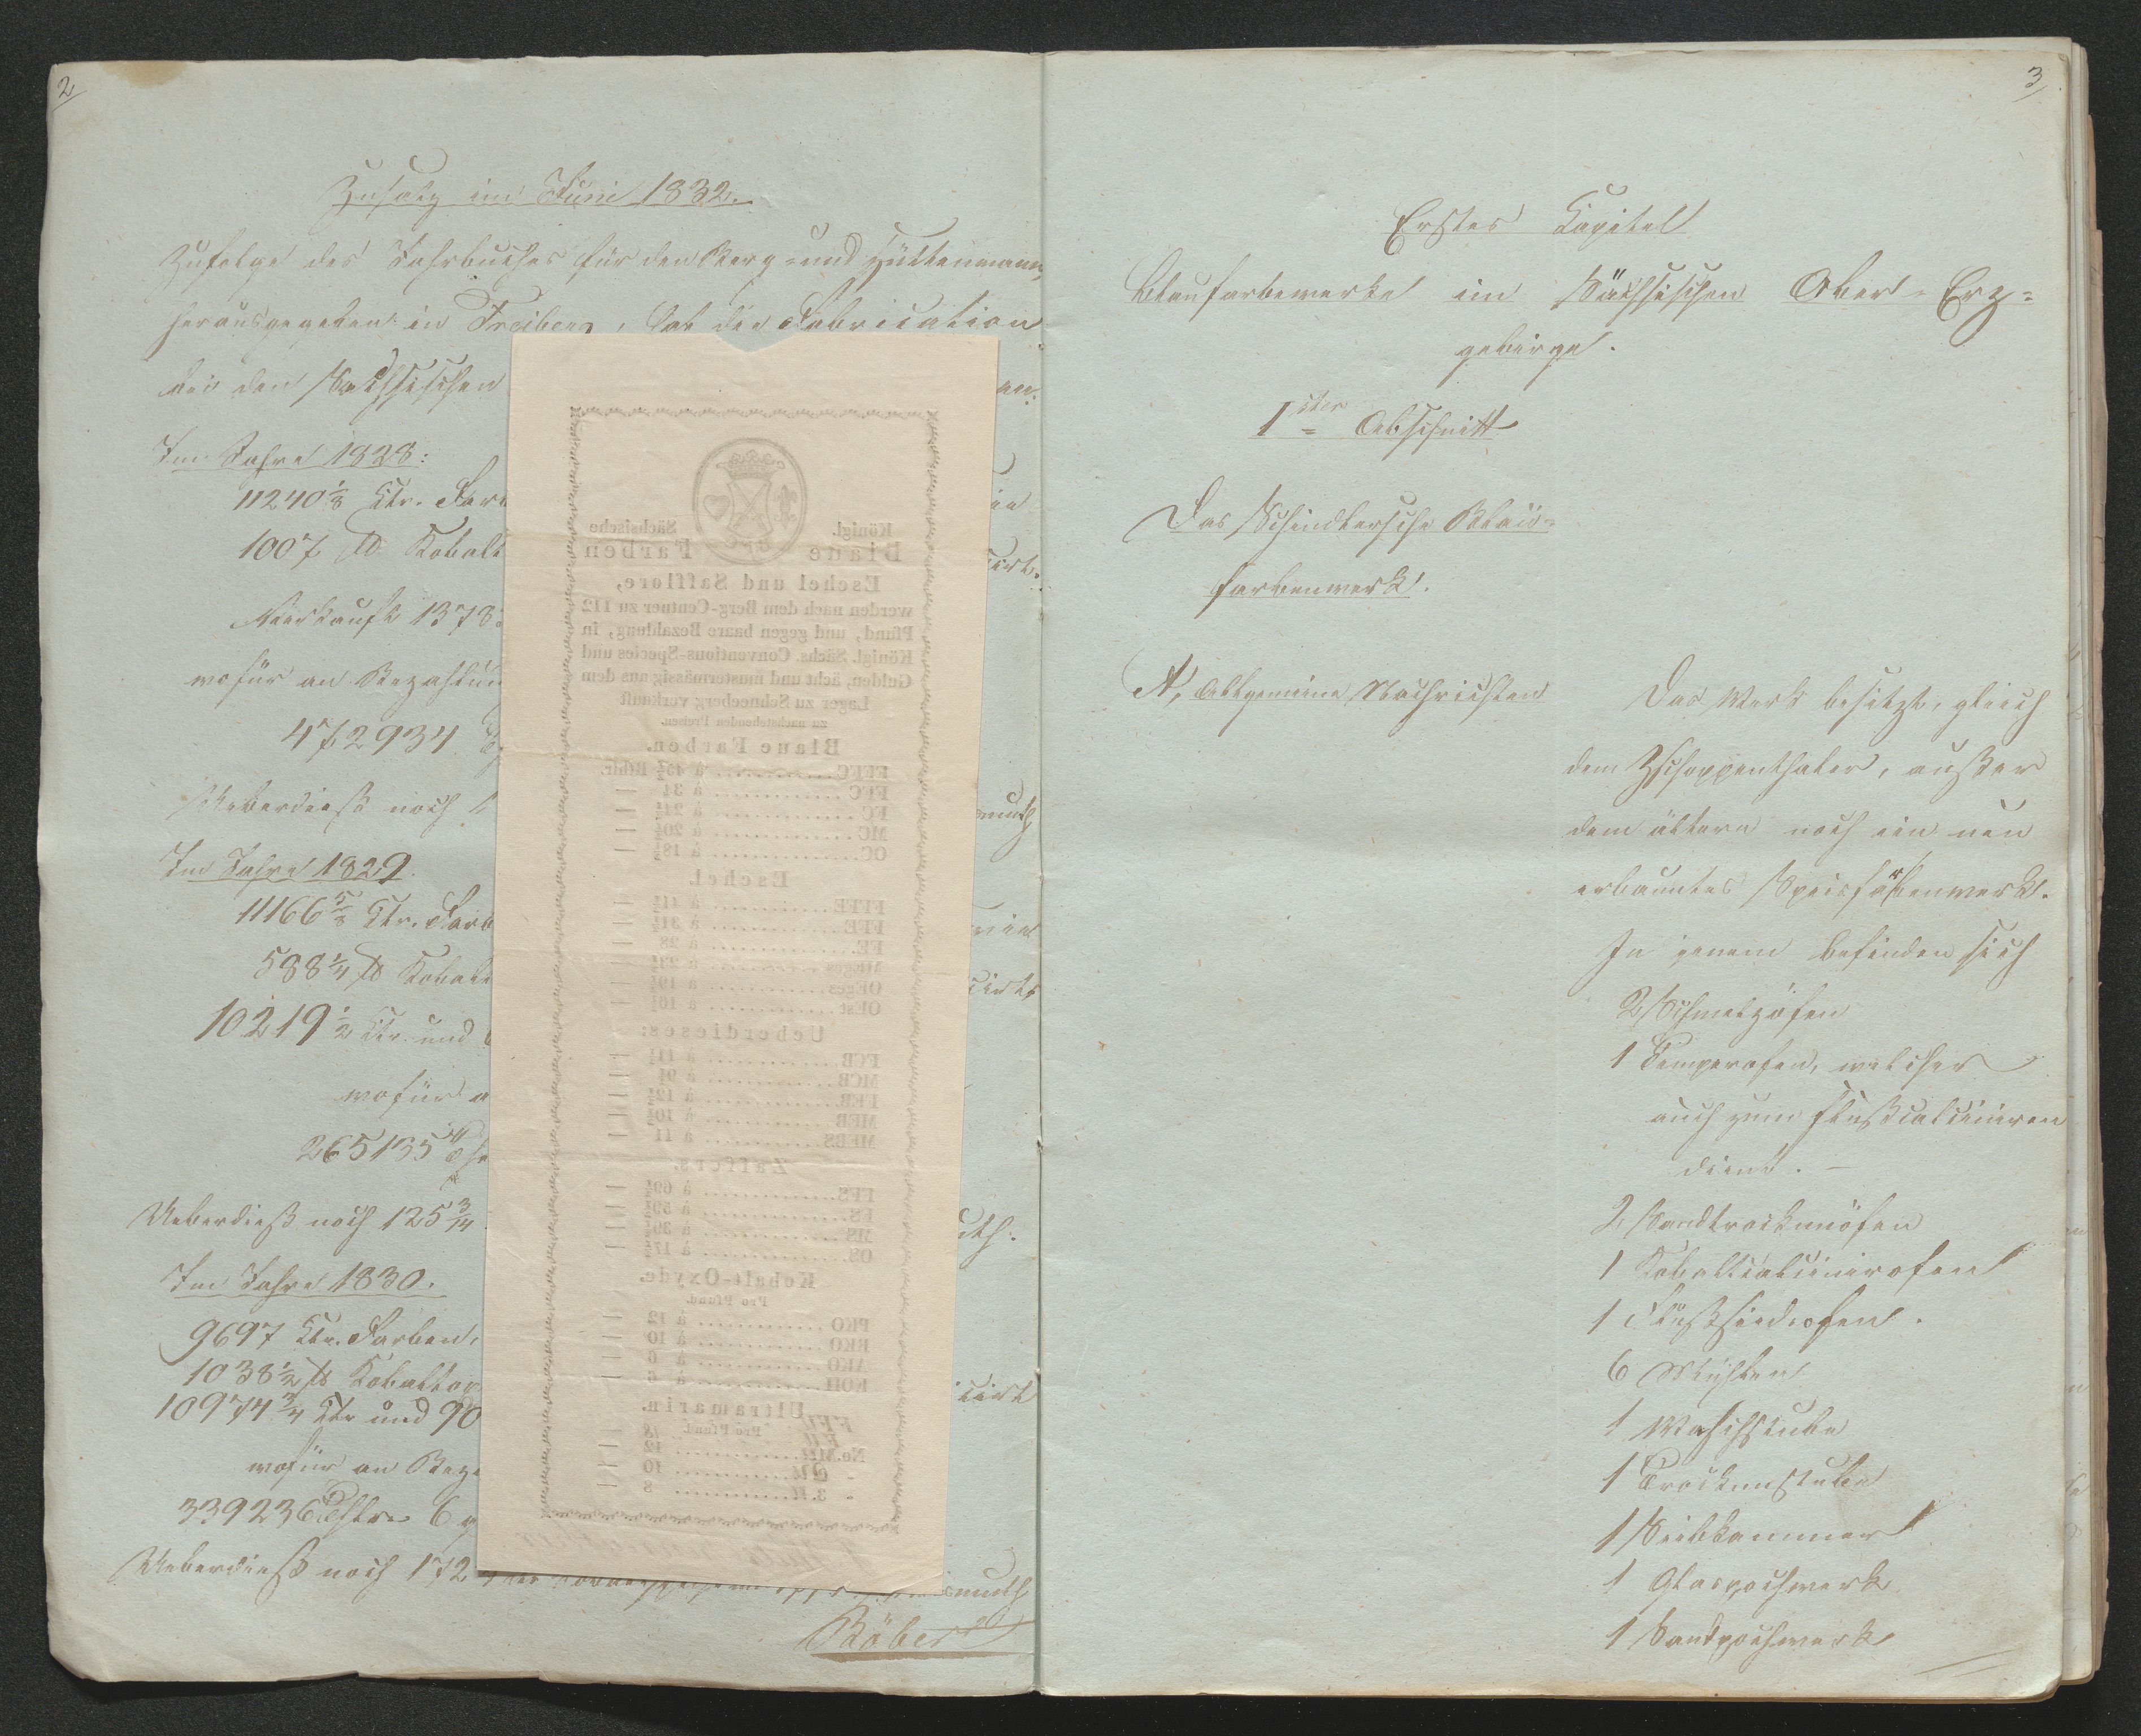 2
Zusatz im Juni 1832.
Zufolge des Jahrbuches für den Berg- und Hüttenmann,
herausgegeben in Freiberg, hat die Fabrication
bei den Sächsischen
Im Jahre 1828:
11240 1/8 Ctr.
1007 ℔ Kobalt
Verkauft 1378
wofür an Bezahlung
472934
Ueberdieß noch
muth
Im Jahre 1829.
11166 5/8 Ctr. Farb
588 1/4 ℔ Kobalt
10219 1/2 Ctr. und
wofür a
265135
Ueberdieß noch 125 3/4
uth.
Im Jahre 1830.
9697 Ctr. Farben,
1038 1/2 ℔ Kobaltox
10974 3/4 Ctr und 90
wofür an Beza
339236 Thlr. 6 g
Ueberdieß noch 172
smuth
Röber
Königl. Sächsische
Blaue Farben
Eschel und Safflore,
werden nach dem Berg-Centner zu 112
Pfund, und gegen baare Bezahlung, in
Königl. Sächs. Conventions-Species und
Gulden, ächt und mustermässig aus dem
Lager zu Schneeberg verkauft
zu nachstehenden Preisen.
Blaue Farben.
FFFC ............ à 45½ Rthlr.
FFC ............ à 34 —
FC ............ à 24½ —
MC ............ à 20½ —
OC ............ à 18½ —
Eschel.
FFFE ............ à 41½ —
FFE ............ à 31½ —
FE ............ à 28 —
MEges ............
OEges ............ à 19½ —
OEst ............ à 16½ —
Ueberdieses:
FCB ............ à 11½ —
MCB ............ à 9½ —
FEB ............ à 12½ —
MEB ............ à 10½ —
MEBS ............ à 11 —
Zaffers.
FFS ............ à 69½ —
FS ............ à 59½ —
MS ............ à 39½ —
OS ............ à 17½ —
Kobalt-Oxyde.
Pro Pfund.
PKO ............ à 12 —
RKO ............ à 10 —
AKO ............ à 6 —
KOH ............ à 6 —
Ultramarin.
Pro Pfund.
3
Erstes Capitel
Blaufarbewerke im Sächsischen Ober-Erz-
gebirge.
1ster Abschnitt
Das Schindlersche Blau-
farbenwerk.
A, Allgemeine Nachrichten
Das Werk besitzt, gleich
dem Zschoppenthaler, außer
dem ältern noch ein neu
erbautes Speisfarbenwerk.
In jenem befinden sich
2 Schmelzöfen
1 Temperofen, welcher
auch zum Flußcalciniren
dient. —
2 Sandtrockenöfen
1 Kobaltcalcinirofen
1 Flußsiedeofen.
6 Mühlen
1 Waschstube
1 Trockenstube
1 Siebkammer
1 Glaspochwerk
1 Sandpochwerk